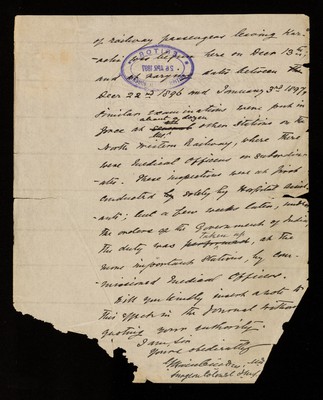 of railway passengers leaving Kar-
-achi was begun here on Decr 13th
and at various dates between the
Decr 22nd 1896 and January 3rd 1897
Similar examinations were put in
force at about a dozen other Stations on the
North Western Railway, where there
were Medical Officers or subordin-
-ates. These inspections were at first
conducted by solely by Hospital Assist
-ants; but a few weeks later, under
the orders of the Government of India
the duty was taken up, at the
more important Stations, by com-
-missioned Medical Officers.
Will you kindly insert a note to
this effect in the Journal without
quoting your authority.
I am, Sir
Yours obediently
M.D.
Surgeon Colonel